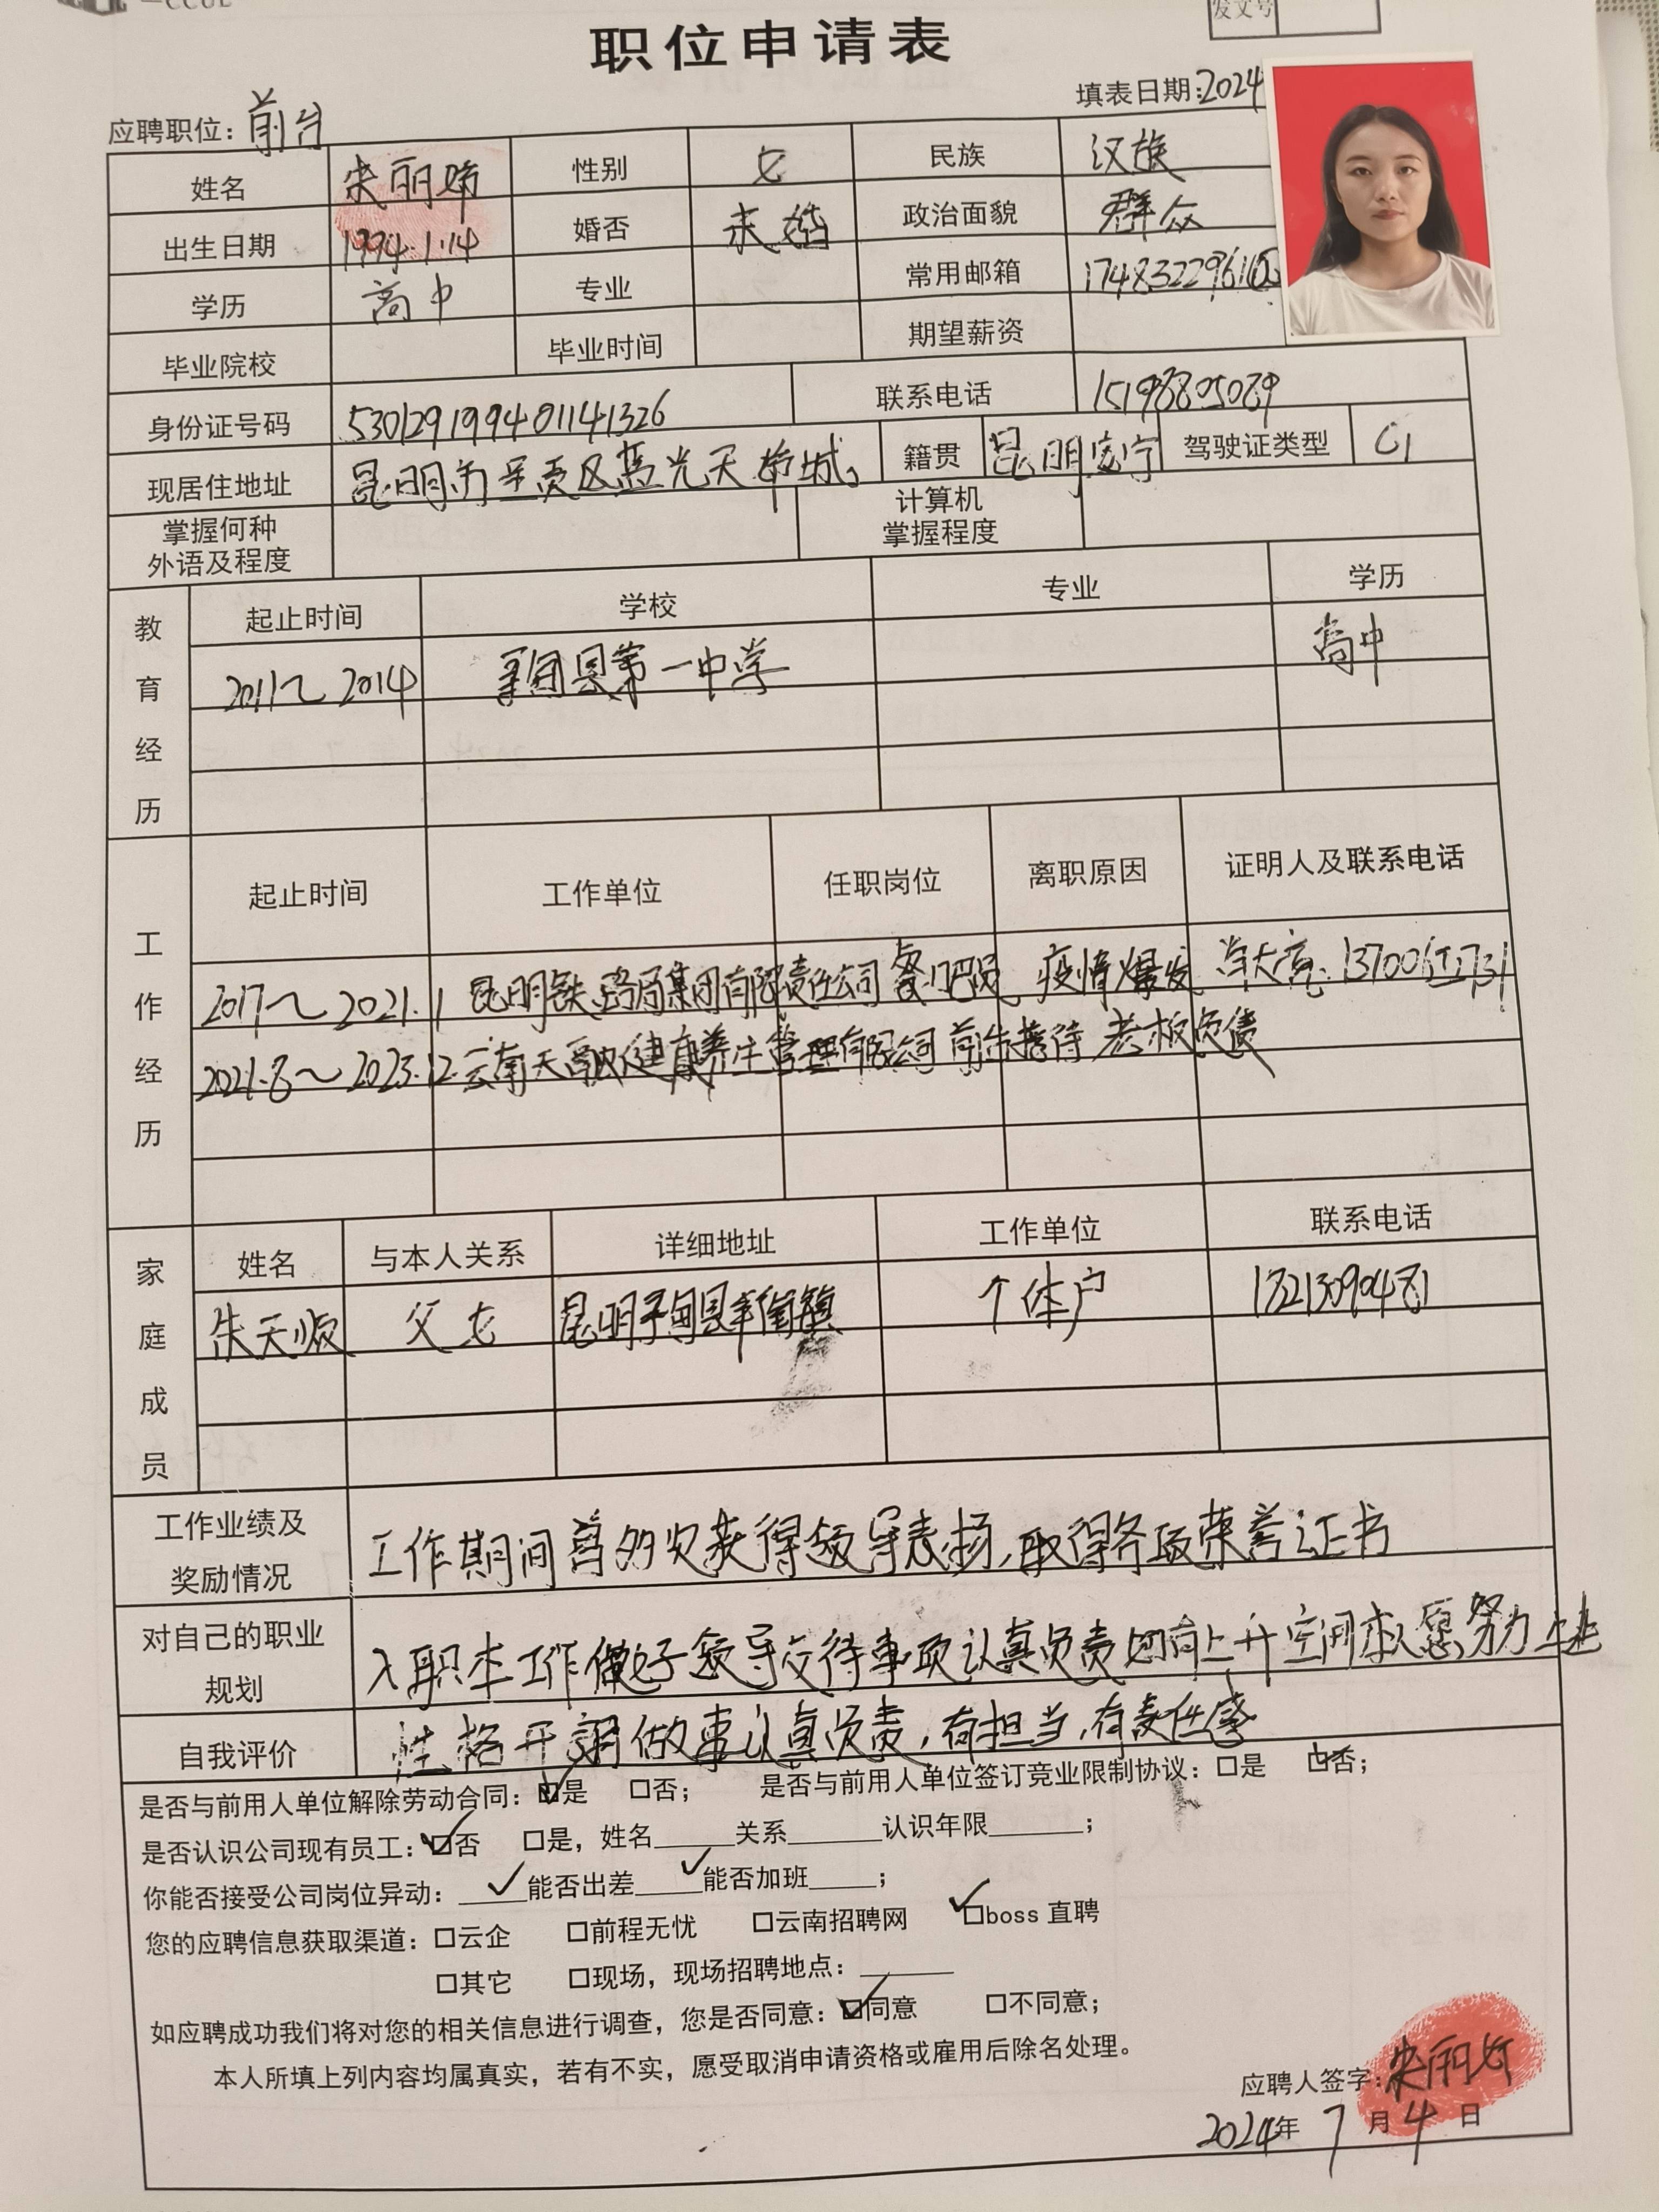 发文号
职位申请表
应聘职位：前台 填表日期：2024
姓名 朱丽 性别 女 民族 汉族
出生日期 1994.1.14 婚否 未婚 政治面貌 群众
学历 高中 专业 常用邮箱
毕业院校 毕业时间 期望薪资
身份证号码 530129199401141326 联系电话 15198805089
现居住地址 昆明市呈贡区蓝光天 城。 籍贯 昆明安宁 驾驶证类型 C1
掌握何种
外语及程度 计算机
掌握程度
教育经历 起止时间 学校 专业 学历
2011~2014 寻甸县第一中学 高中
工作经历 起止时间 工作单位 任职岗位 离职原因 证明人及联系电话
2017~2021.1 昆明铁路局集团有限责任公司 餐吧员 疫情爆发
2021.8~2023.12 云南天融健康养生管理有限公司 前台接待 老板负债
家庭成员 姓名 与本人关系 详细地址 工作单位 联系电话
朱天顺 父女 昆明寻甸县 街镇 个体户
工作业绩及
奖励情况 工作期间曾多次获得领导表扬，取得各项荣誉证书
对自己的职业
规划 入职本工作做好领导交待事项认真负责如有上升空间本人愿努力上进
自我评价 性格开朗做事认真负责，有担当，有责任感
是否与前用人单位解除劳动合同：☑是 □否； 是否与前用人单位签订竞业限制协议：□是 ☑否；
是否认识公司现有员工：☑否 □是，姓名_____关系______认识年限______；
你能否接受公司岗位异动：__✓__能否出差__✓__能否加班____；
您的应聘信息获取渠道：□云企 □前程无忧 □云南招聘网 ☑boss 直聘
□其它 □现场，现场招聘地点：______
如应聘成功我们将对您的相关信息进行调查，您是否同意：☑同意 □不同意；
本人所填上列内容均属真实，若有不实，愿受取消申请资格或雇用后除名处理。
应聘人签字：朱丽
2024年7月4日